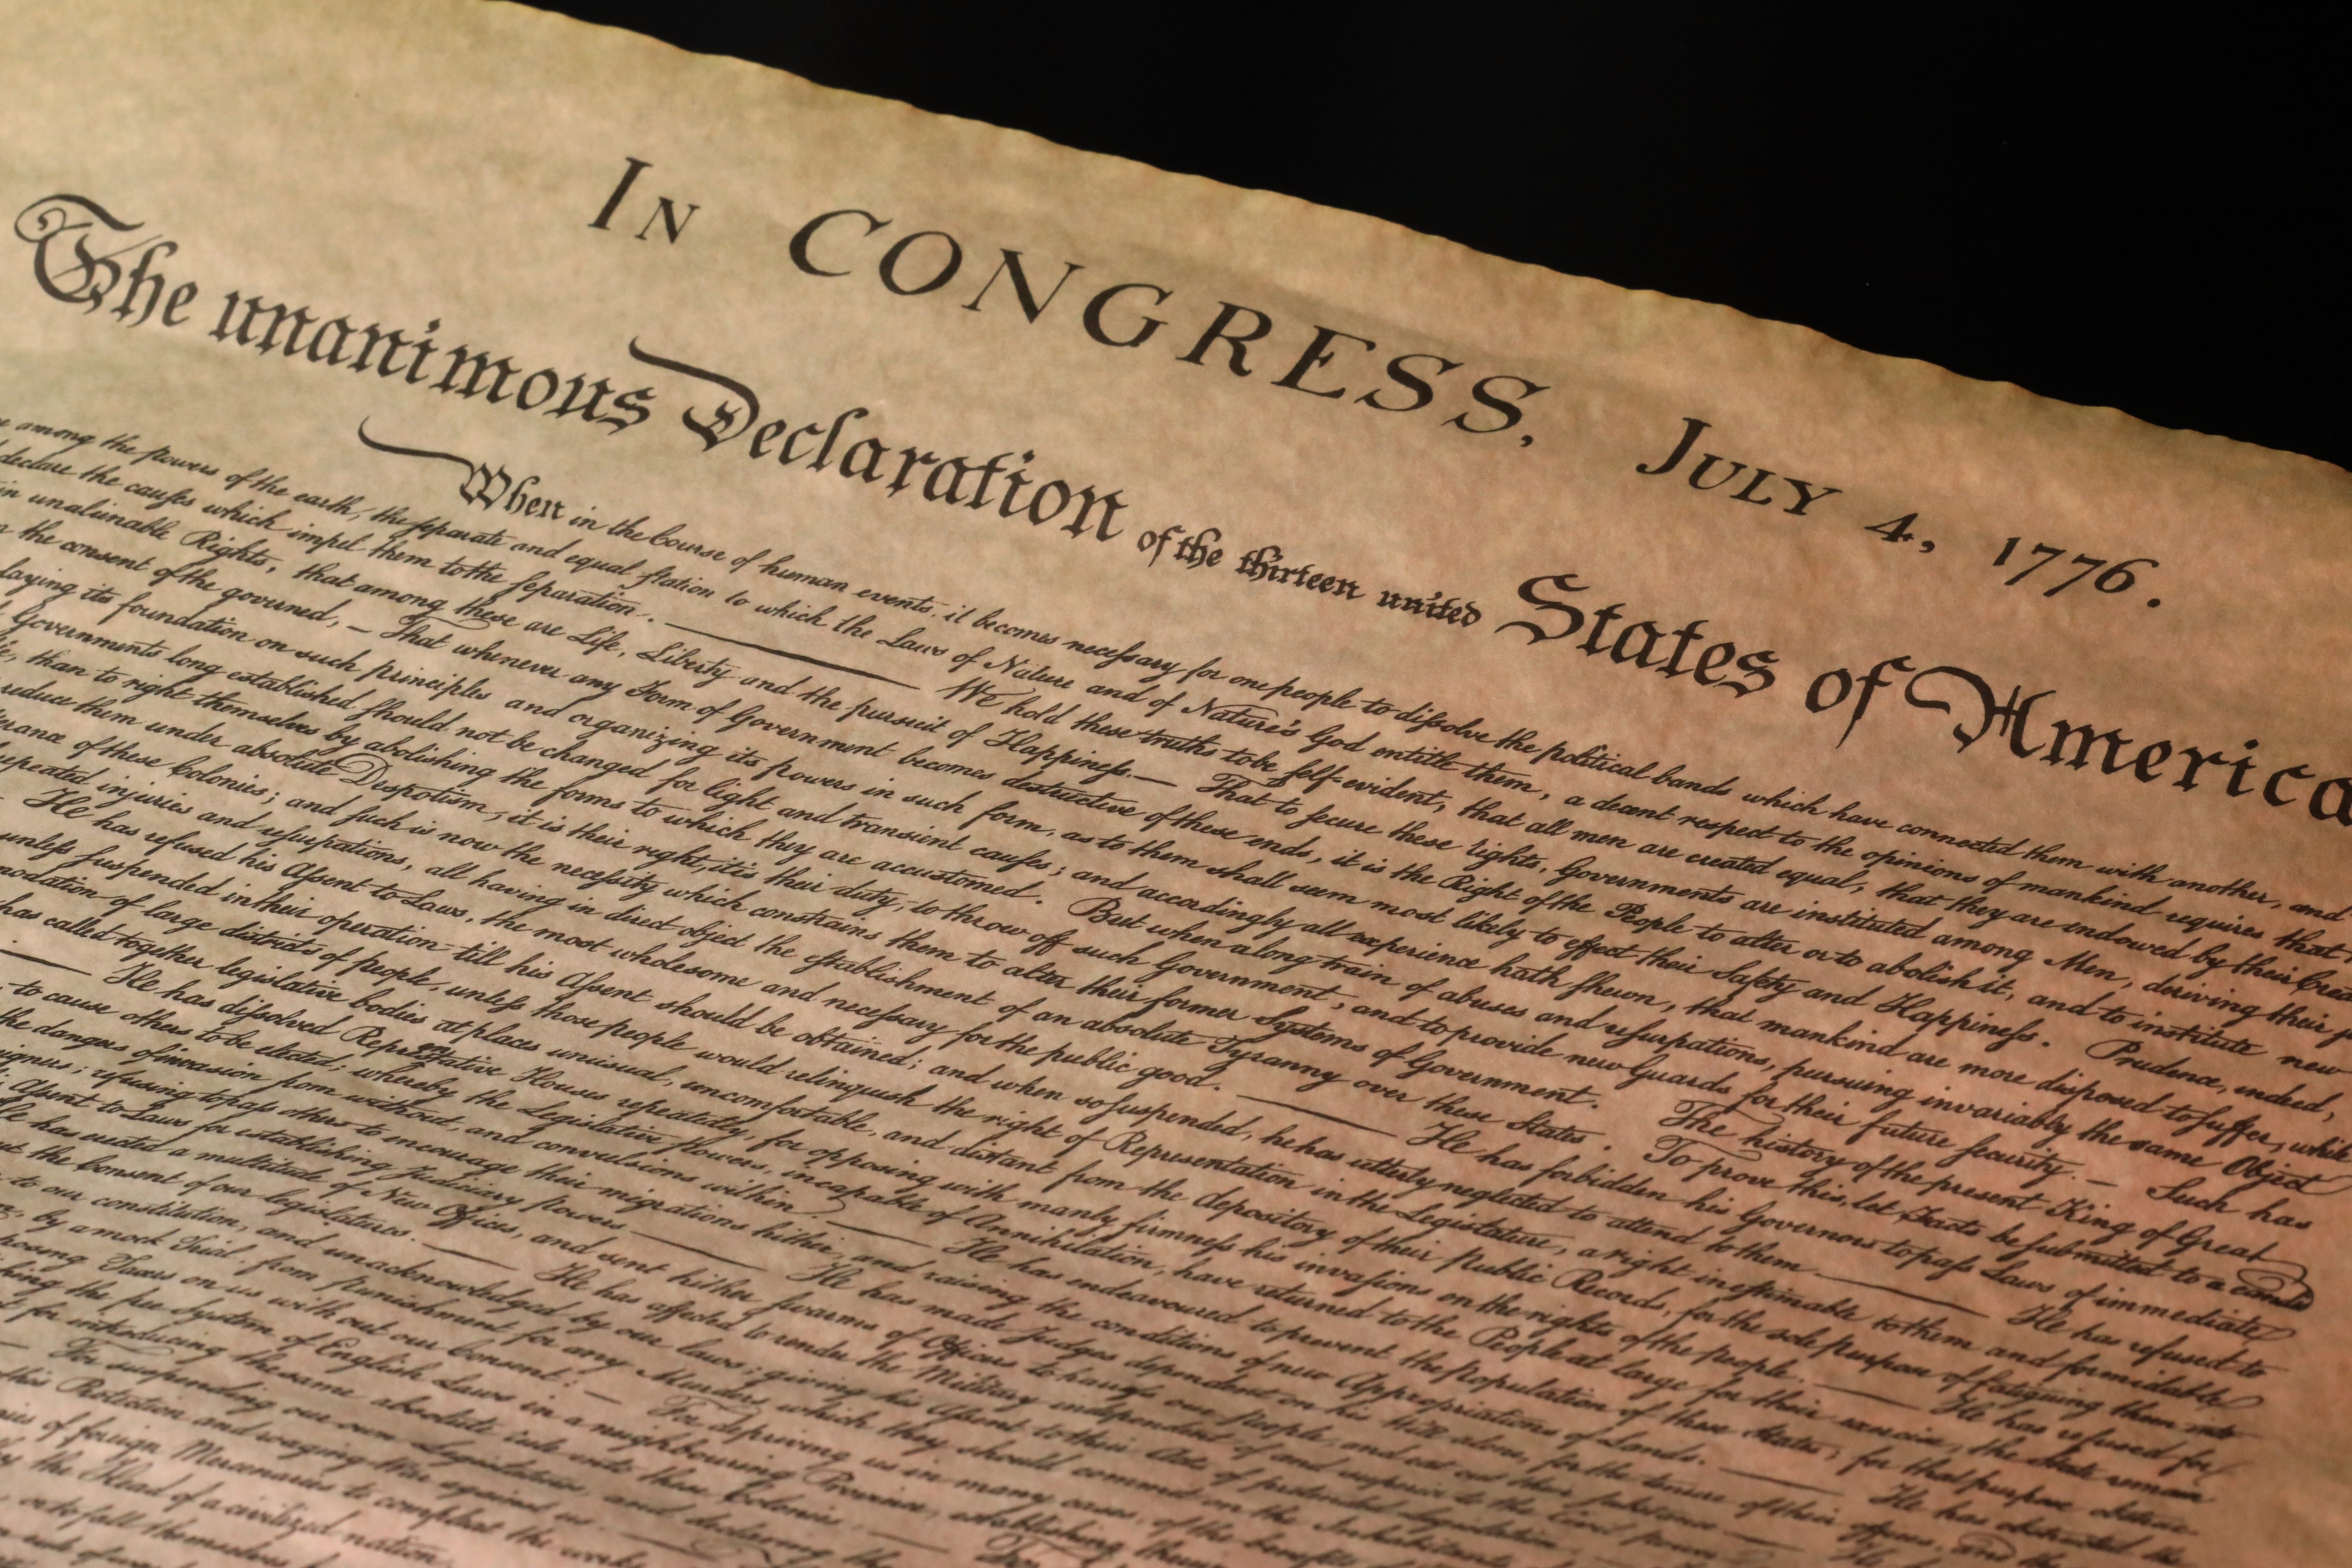 In CONGRESS, July 4, 1776.
The unanimous Declaration of the thirteen united States of America
When in the Course of human events, it becomes necessary for one people to dissolve the political bands which have connected them with another, and
among the powers of the earth, the separate and equal station to which the Laws of Nature and of Nature's God entitle them, a decent respect to the opinions of mankind requires that
declare the causes which impel them to the separation. — We hold these truths to be self-evident, that all men are created equal, that they are endowed by their Crea
in unalienable Rights, that among these are Life, Liberty and the pursuit of Happiness.— That to secure these rights, Governments are instituted among Men, deriving their
the consent of the governed, — That whenever any Form of Government becomes destructive of these ends, it is the Right of the People to alter or to abolish it, and to institute new
laying its foundation on such principles and organizing its powers in such form, as to them shall seem most likely to effect their Safety and Happiness. Prudence, indeed,
Governments long established should not be changed for light and transient causes; and accordingly all experience hath shewn, that mankind are more disposed to suffer, while
than to right themselves by abolishing the forms to which they are accustomed. But when a long train of abuses and usurpations, pursuing invariably the same Object
reduce them under absolute Despotism, it is their right, it is their duty, to throw off such Government, and to provide new Guards for their future security.— Such has
erance of these Colonies; and such is now the necessity which constrains them to alter their former Systems of Government. The history of the present King of Great
repeated injuries and usurpations, all having in direct object the establishment of an absolute Tyranny over these States. To prove this, let Facts be submitted to a candid
He has refused his Assent to Laws, the most wholesome and necessary for the public good. — He has forbidden his Governors to pass Laws of immediate
unless suspended in their operation till his Assent should be obtained; and when so suspended, he has utterly neglected to attend to them. — He has refused to
modation of large districts of people, unless those people would relinquish the right of Representation in the Legislature, a right inestimable to them and formidable
has called together legislative bodies at places unusual, uncomfortable, and distant from the depository of their public Records, for the sole purpose of fatiguing them into
— He has dissolved Representative Houses repeatedly, for opposing with manly firmness his invasions on the rights of the people. — He has refused for
to cause others to be elected; whereby the Legislative powers, incapable of Annihilation, have returned to the People at large for their exercise; the State remain
the dangers of invasion from without, and convulsions within. — He has endeavoured to prevent the population of these States; for that purpose
eigners; refusing to pass others to encourage their migrations hither, and raising the conditions of new Appropriations of Lands. — He has obstructed the
Assent to Laws for establishing Judiciary powers — He has made Judges dependent on his Will alone, for the tenure of their offices, and the
He has erected a multitude of New Offices, and sent hither swarms of Officers to harrass our people, and eat out their substance
the Consent of our legislatures. — He has affected to render the Military independent of and superior to the Civil power
to our constitution, and unacknowledged by our laws; giving his Assent to their Acts of pretended Legislation
by a mock Trial, from punishment for any Murders which they should commit on the Inhabitants
posing Taxes on us without our Consent: — For depriving us in many cases, of the benefits
the free System of English Laws in a neighbouring Province, establishing
for introducing the same absolute rule into these Colonies —
For suspending our own Legislatures, and declaring
his Protection and waging War against us
of foreign Mercenaries to compleat the works
the Head of a civilized nation.
or to fall themselves